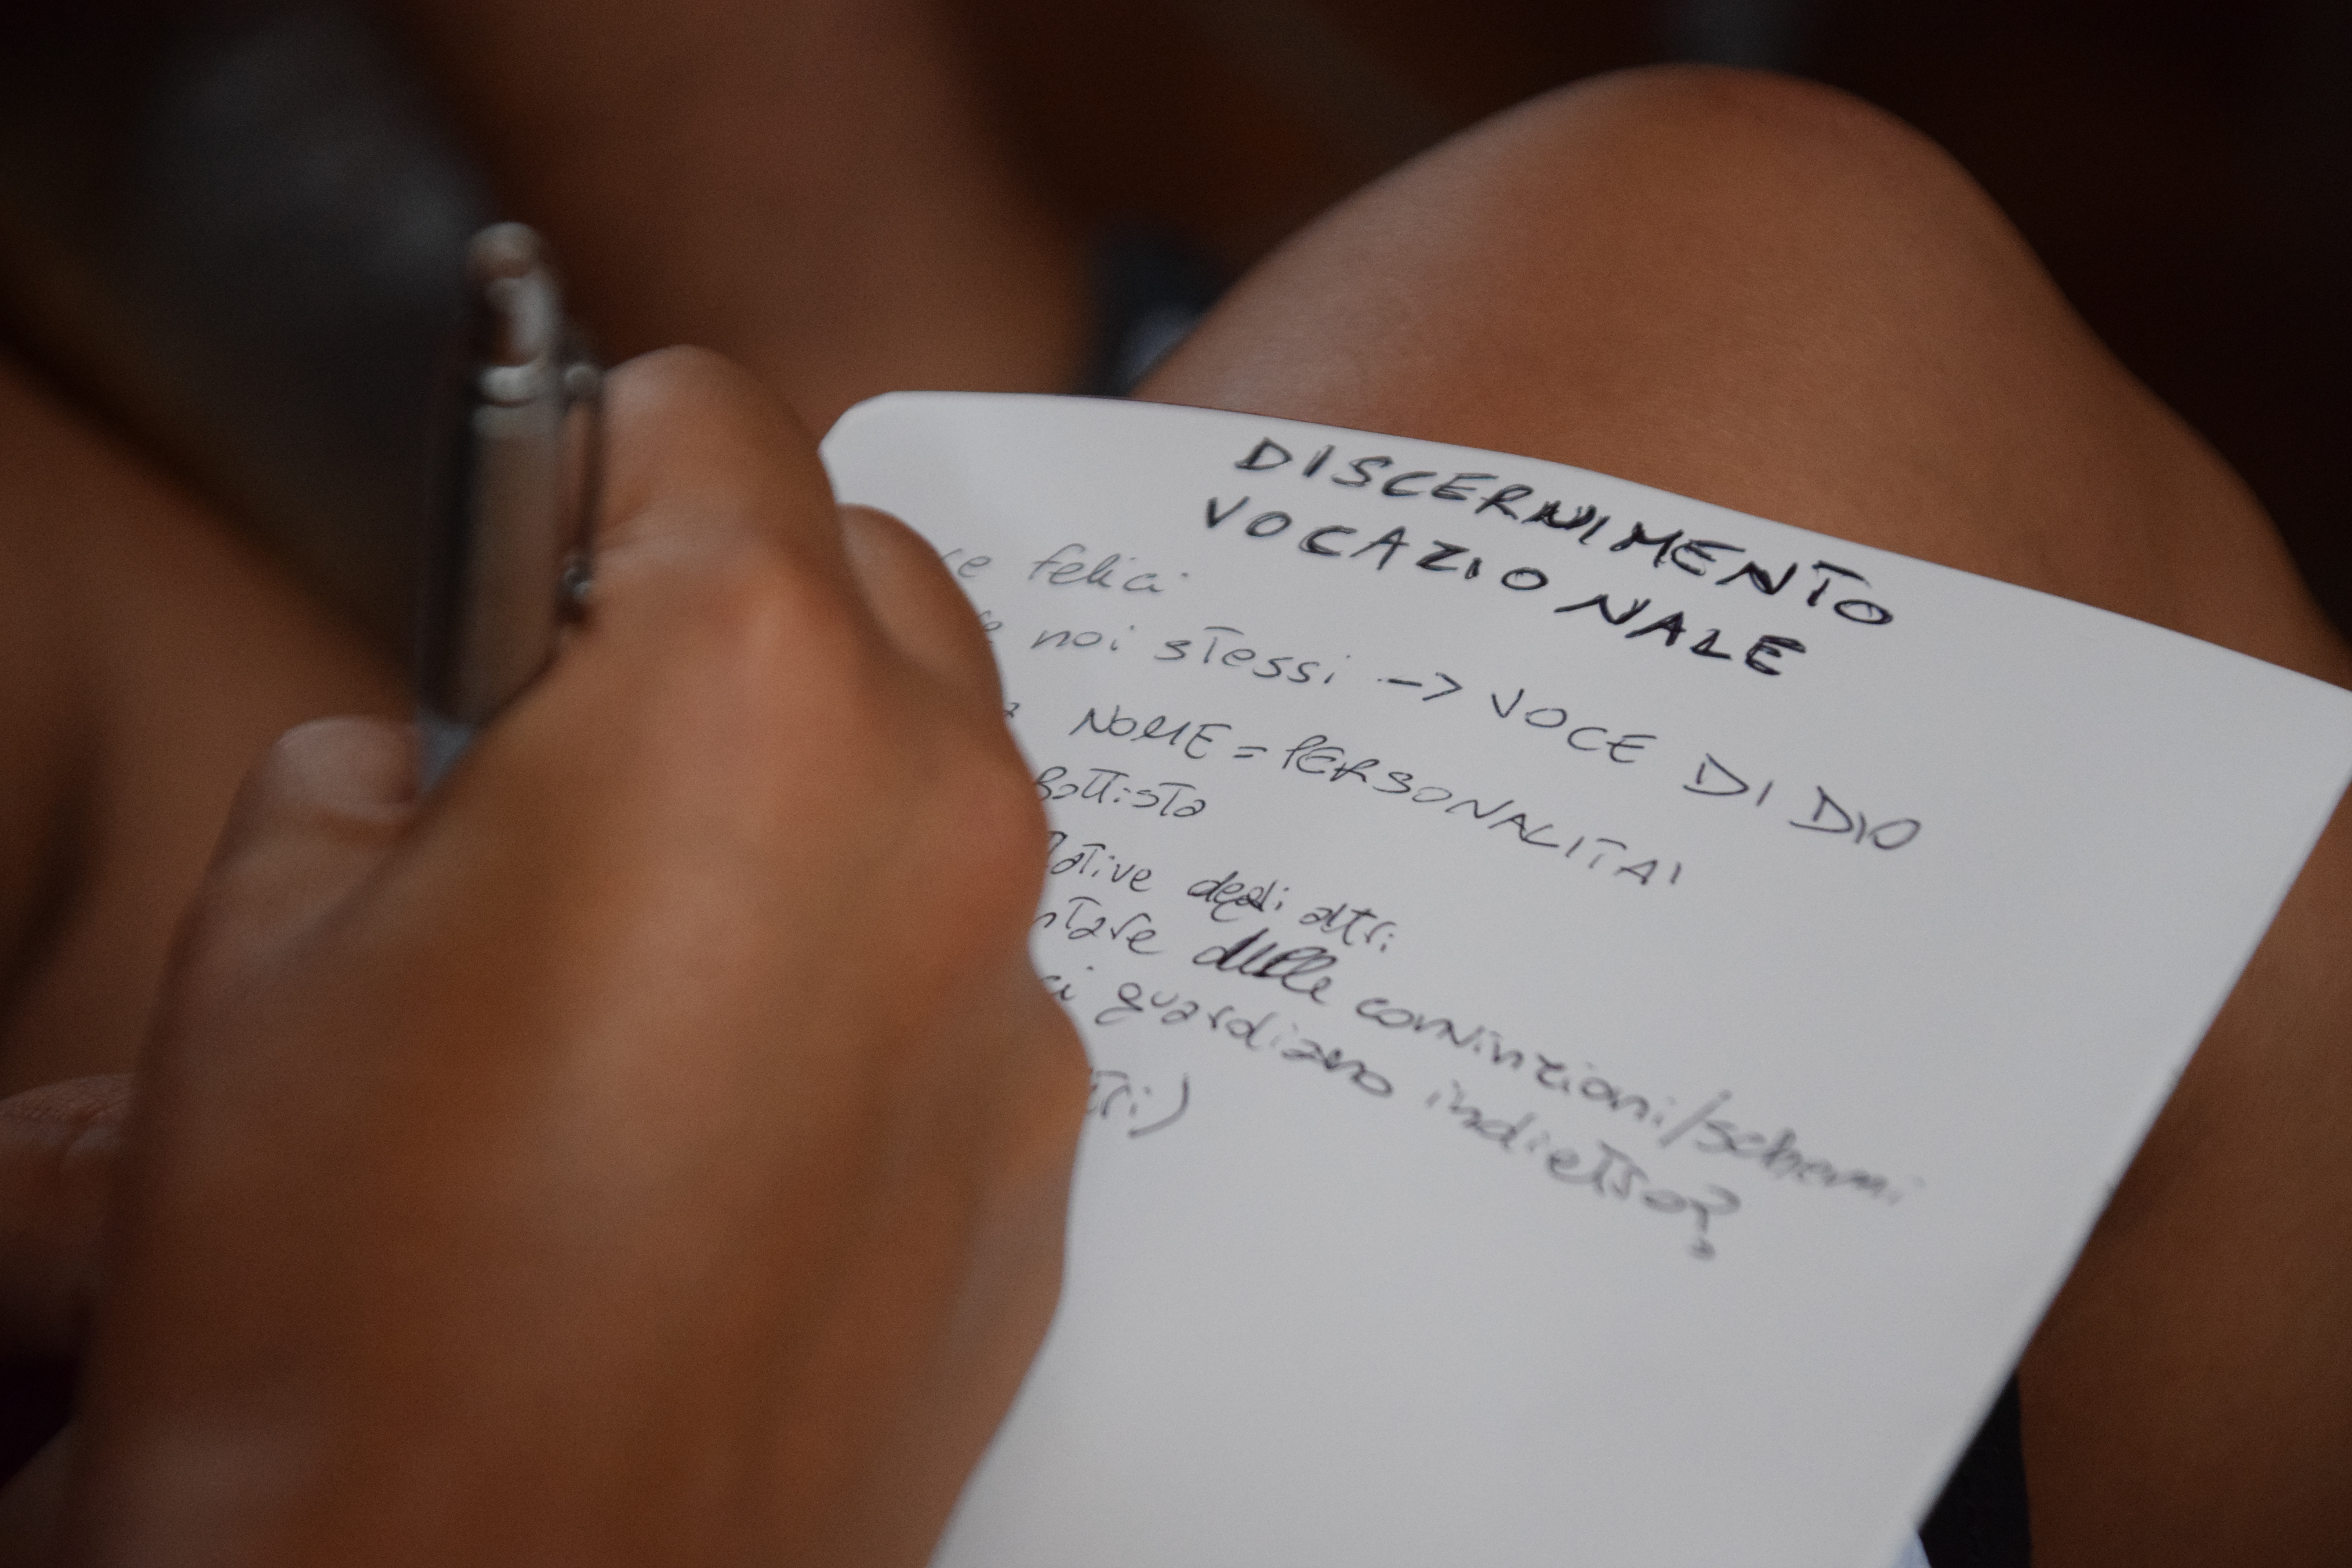 DISCERNIMENTO
VOCAZIONALE
felici
noi stessi -> VOCE DI DIO
NOME = PERSONALITA'
Battista
degli altri
delle convinzioni/schemi
ci guardiamo indietro?